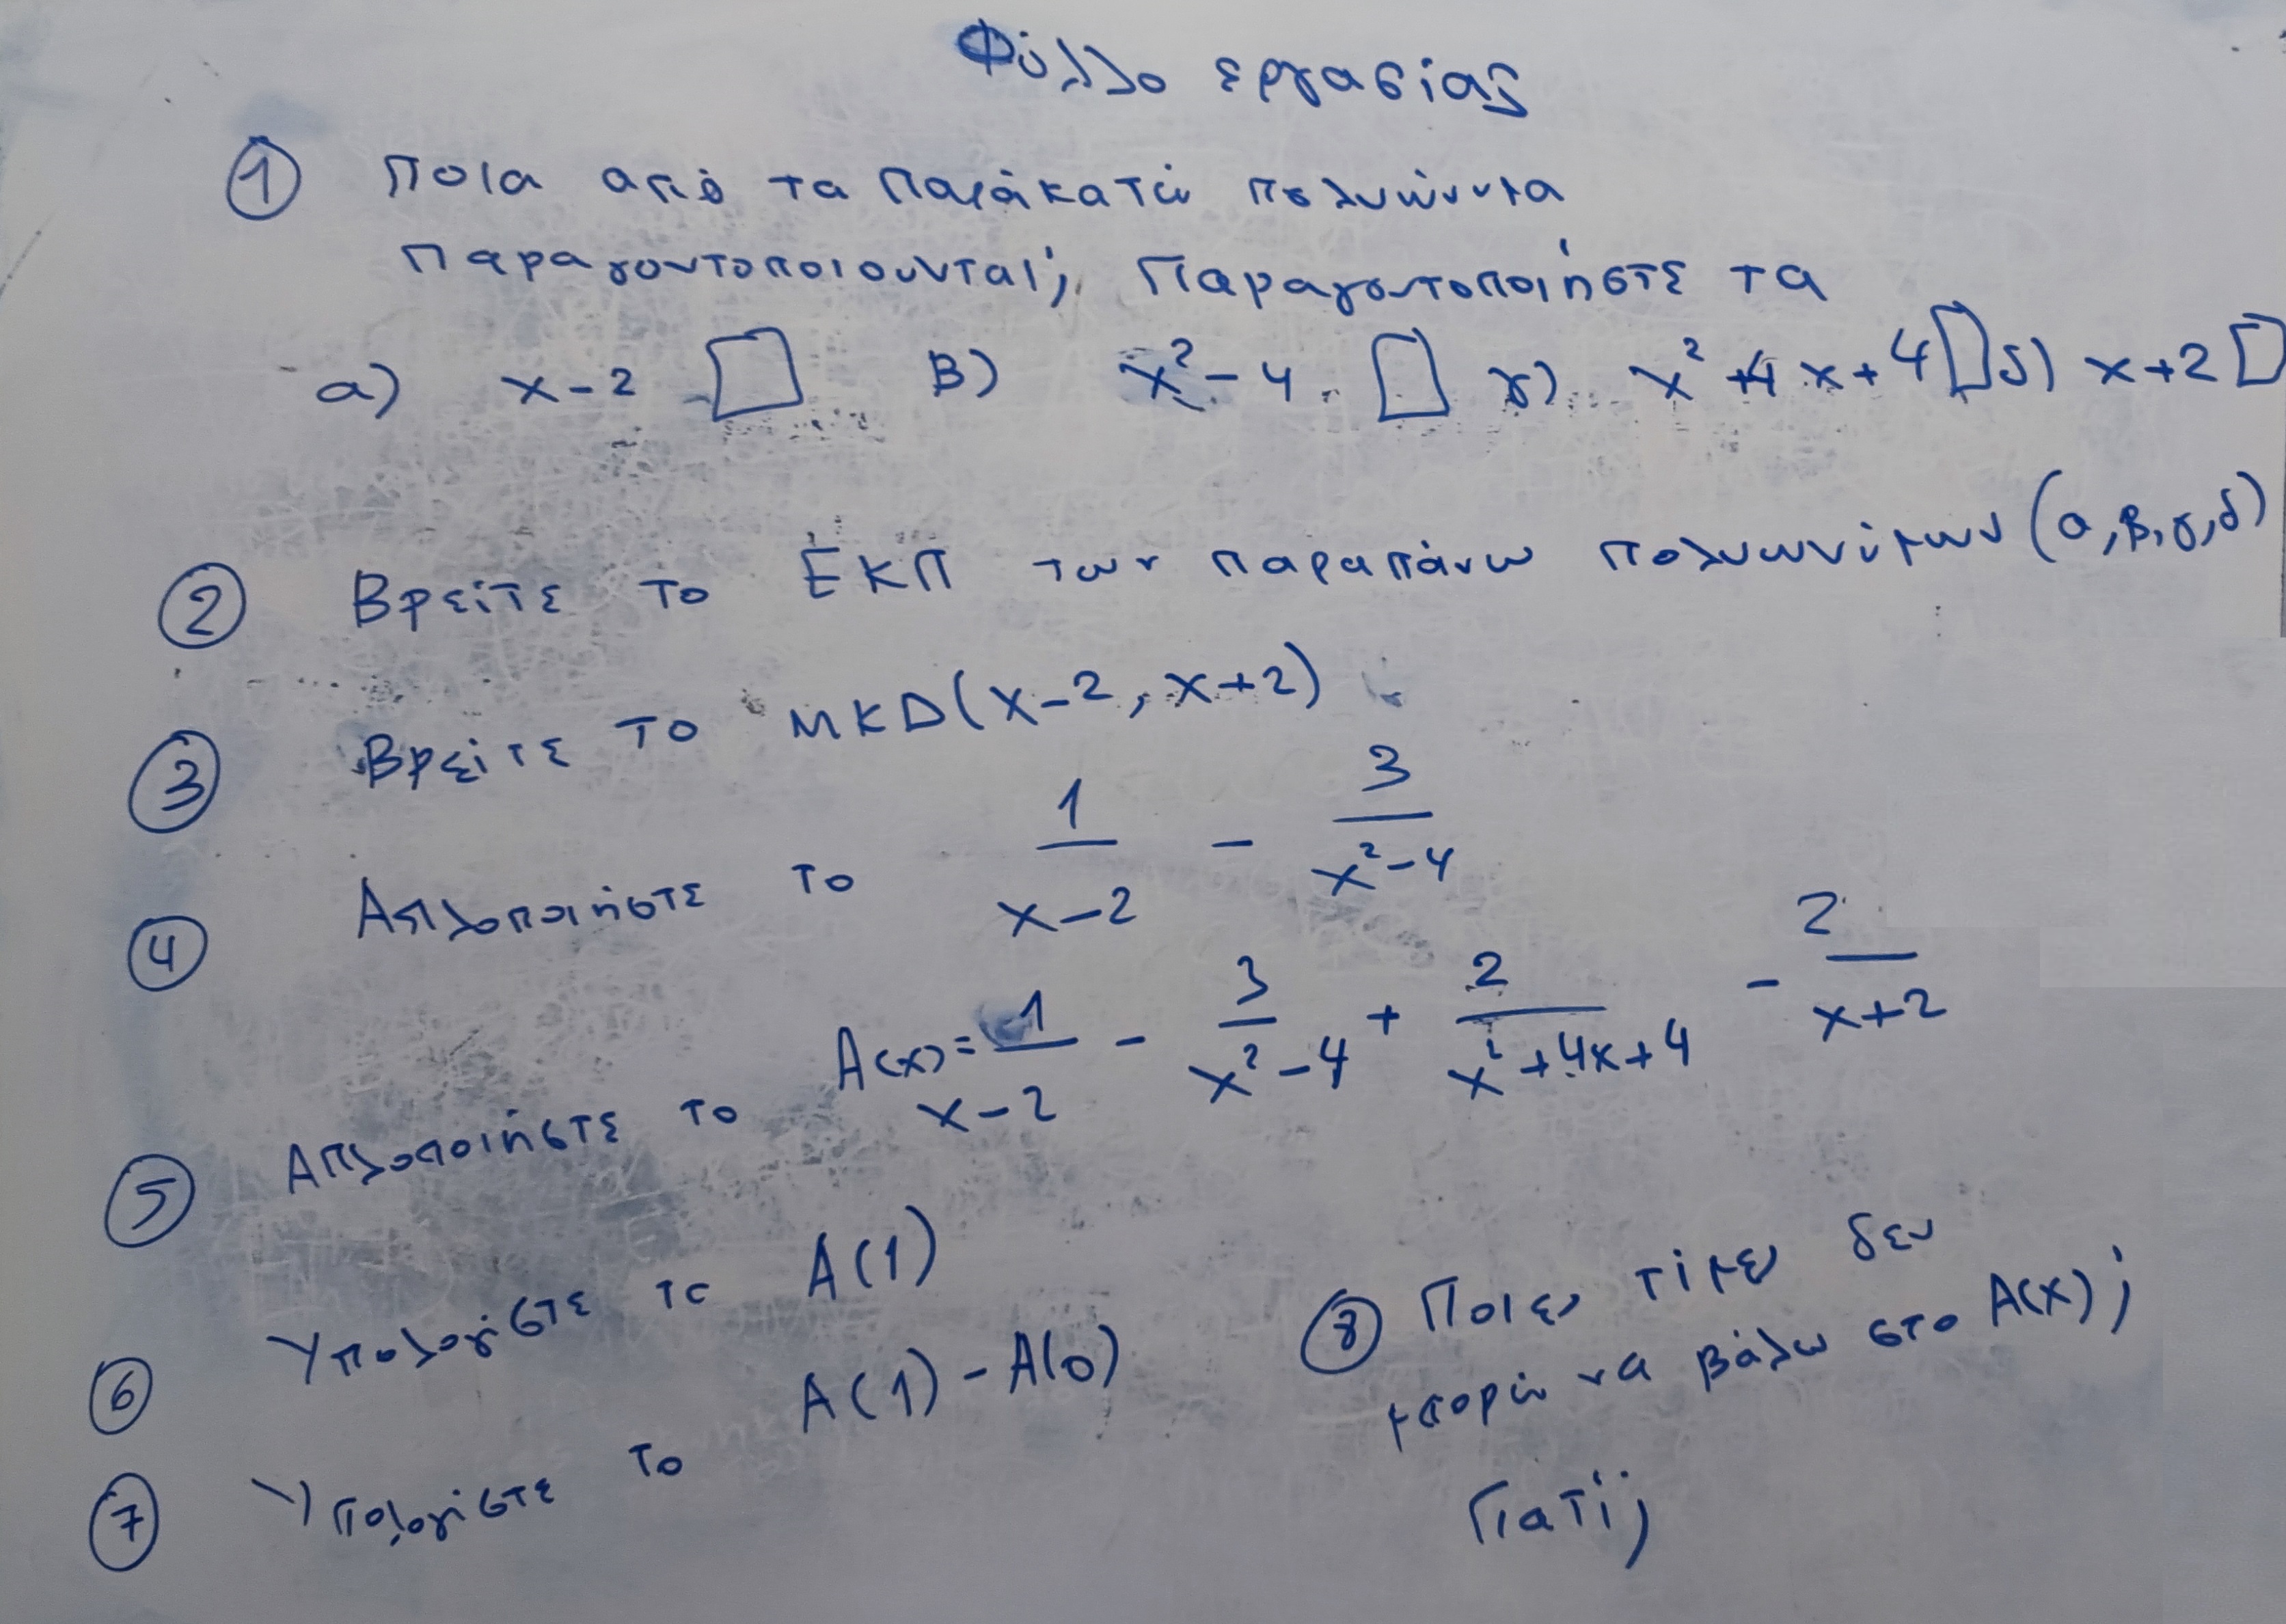 Φύλλο εργασίας
① Ποια από τα παρακάτω πολυώνυμα
παραγοντοποιουνται; Παραγοντοποιήστε τα
α) x-2 □ β) x²-4 □ γ) x²+4x+4 □ δ) x+2 □
② Βρείτε το ΕΚΠ των παραπάνω πολυωνύμων (α,β,γ,δ)
③ Βρείτε το ΜΚΔ(x-2, x+2)
④ Απλοποιήστε το 1/(x-2) - 3/(x²-4)
⑤ Απλοποιήστε το A(x)= 1/(x-2) - 3/(x²-4) + 2/(x²+4x+4) - 2/(x+2)
⑥ Υπολογίστε το A(1)
⑦ Υπολογίστε το A(1)-A(0)
⑧ Ποιες τιμές δεν
μπορώ να βάλω στο A(x);
Γιατί;